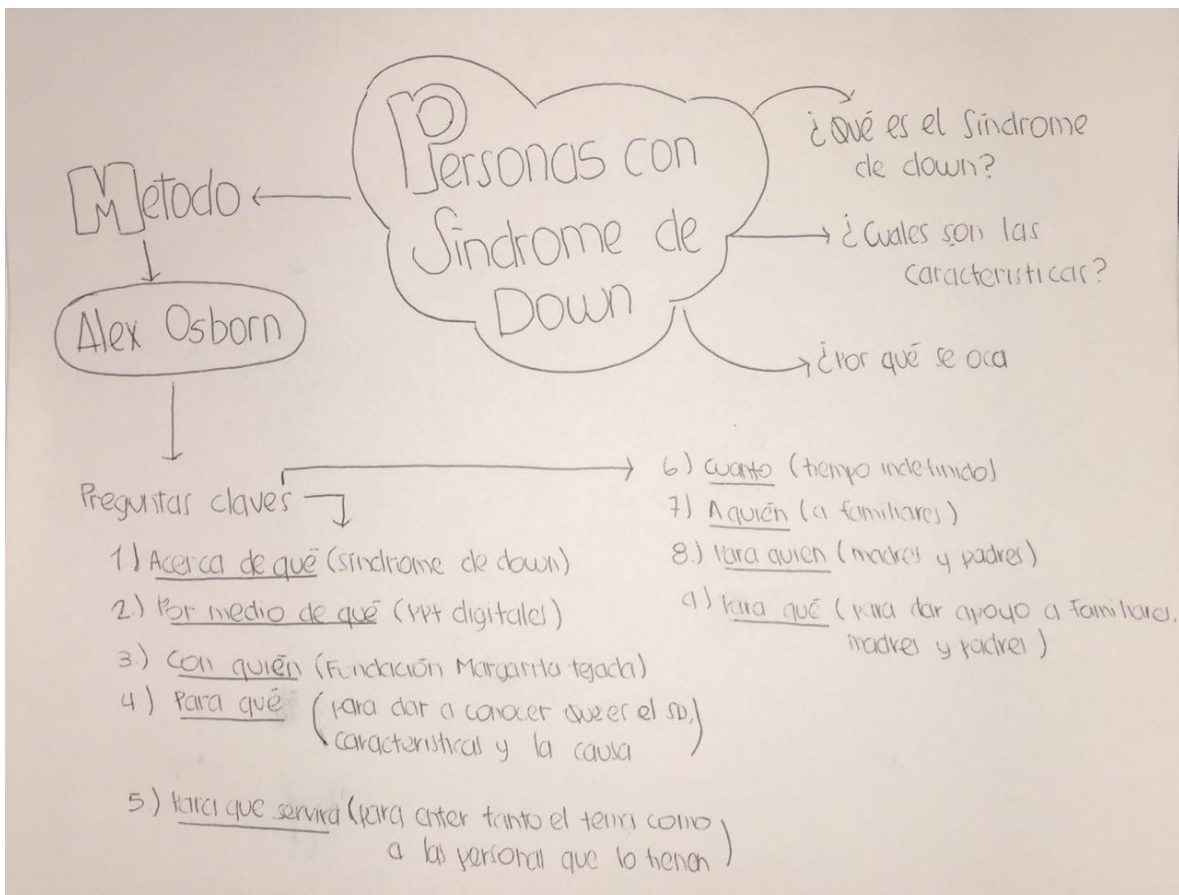 Personas con
Síndrome de
Down
¿Qué es el Síndrome
de down?
¿Cuales son las
caracteristicas?
¿Por qué se oca
Metodo
Alex Osborn
Preguntas claves
1) Acerca de qué (síndrome de down)
2.) Por medio de qué (PPt digitales)
3.) Con quién (Fundación Margarita tejada)
4) Para qué (para dar a conocer que es el SD,
caracteristicas y la causa)
5.) Para que servirá (para enter tanto el tema como
a las personas que lo tienen)
6.) cuanto (tiempo indefinido)
7) A quién (a familiares)
8.) Para quien (madres y padres)
9) Para qué (para dar apoyo a familiares,
madres y padres)